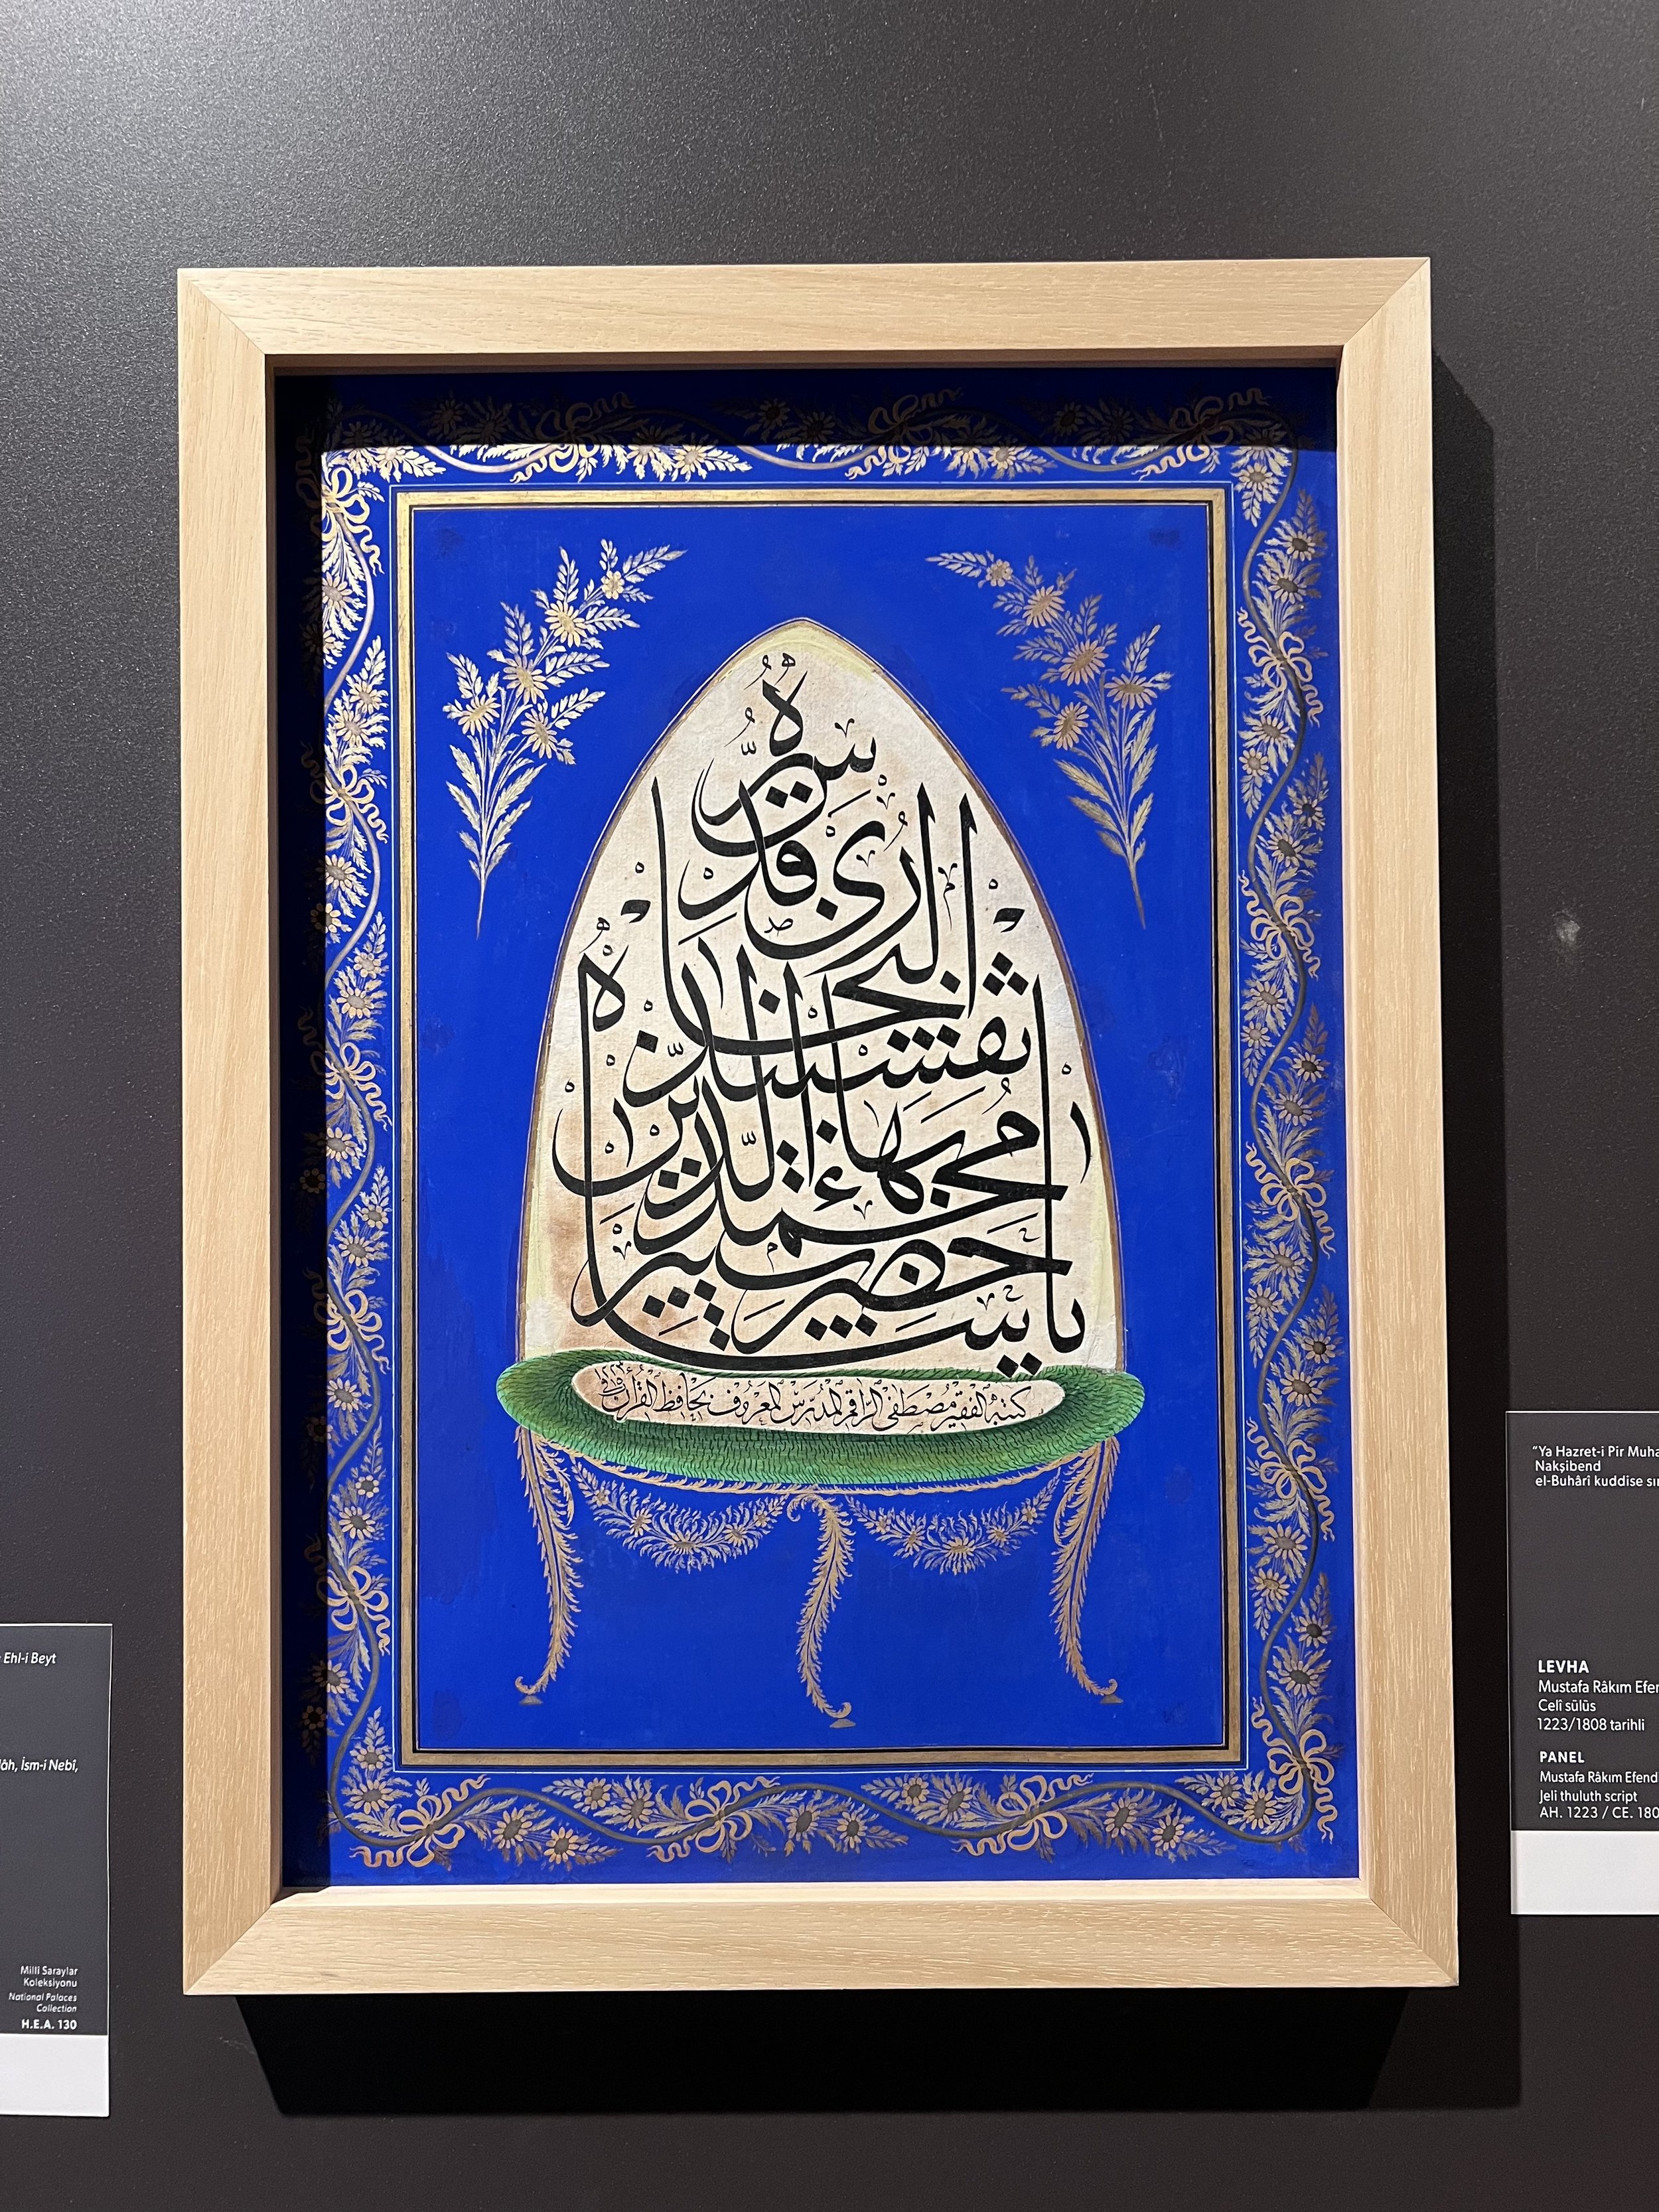 سره
قدس
البخارى
نقشبند
بهاء الدين
محمد
حضرت پير
يا
كتبه الفقير مصطفى الراقم المدرس المعروف بحافظ القرآن
Ehl-i Beyt
İsm-i Nebî,
Milli Saraylar
Koleksiyonu
National Palaces
Collection
H.E.A. 130
"Ya Hazret-i Pir
Nakşibend
el-Buhârî kuddise
LEVHA
Mustafa Râkım
Celî sülüs
1223/1808 tarihli
PANEL
Mustafa Râkım
Jeli thuluth script
AH. 1223 / CE.